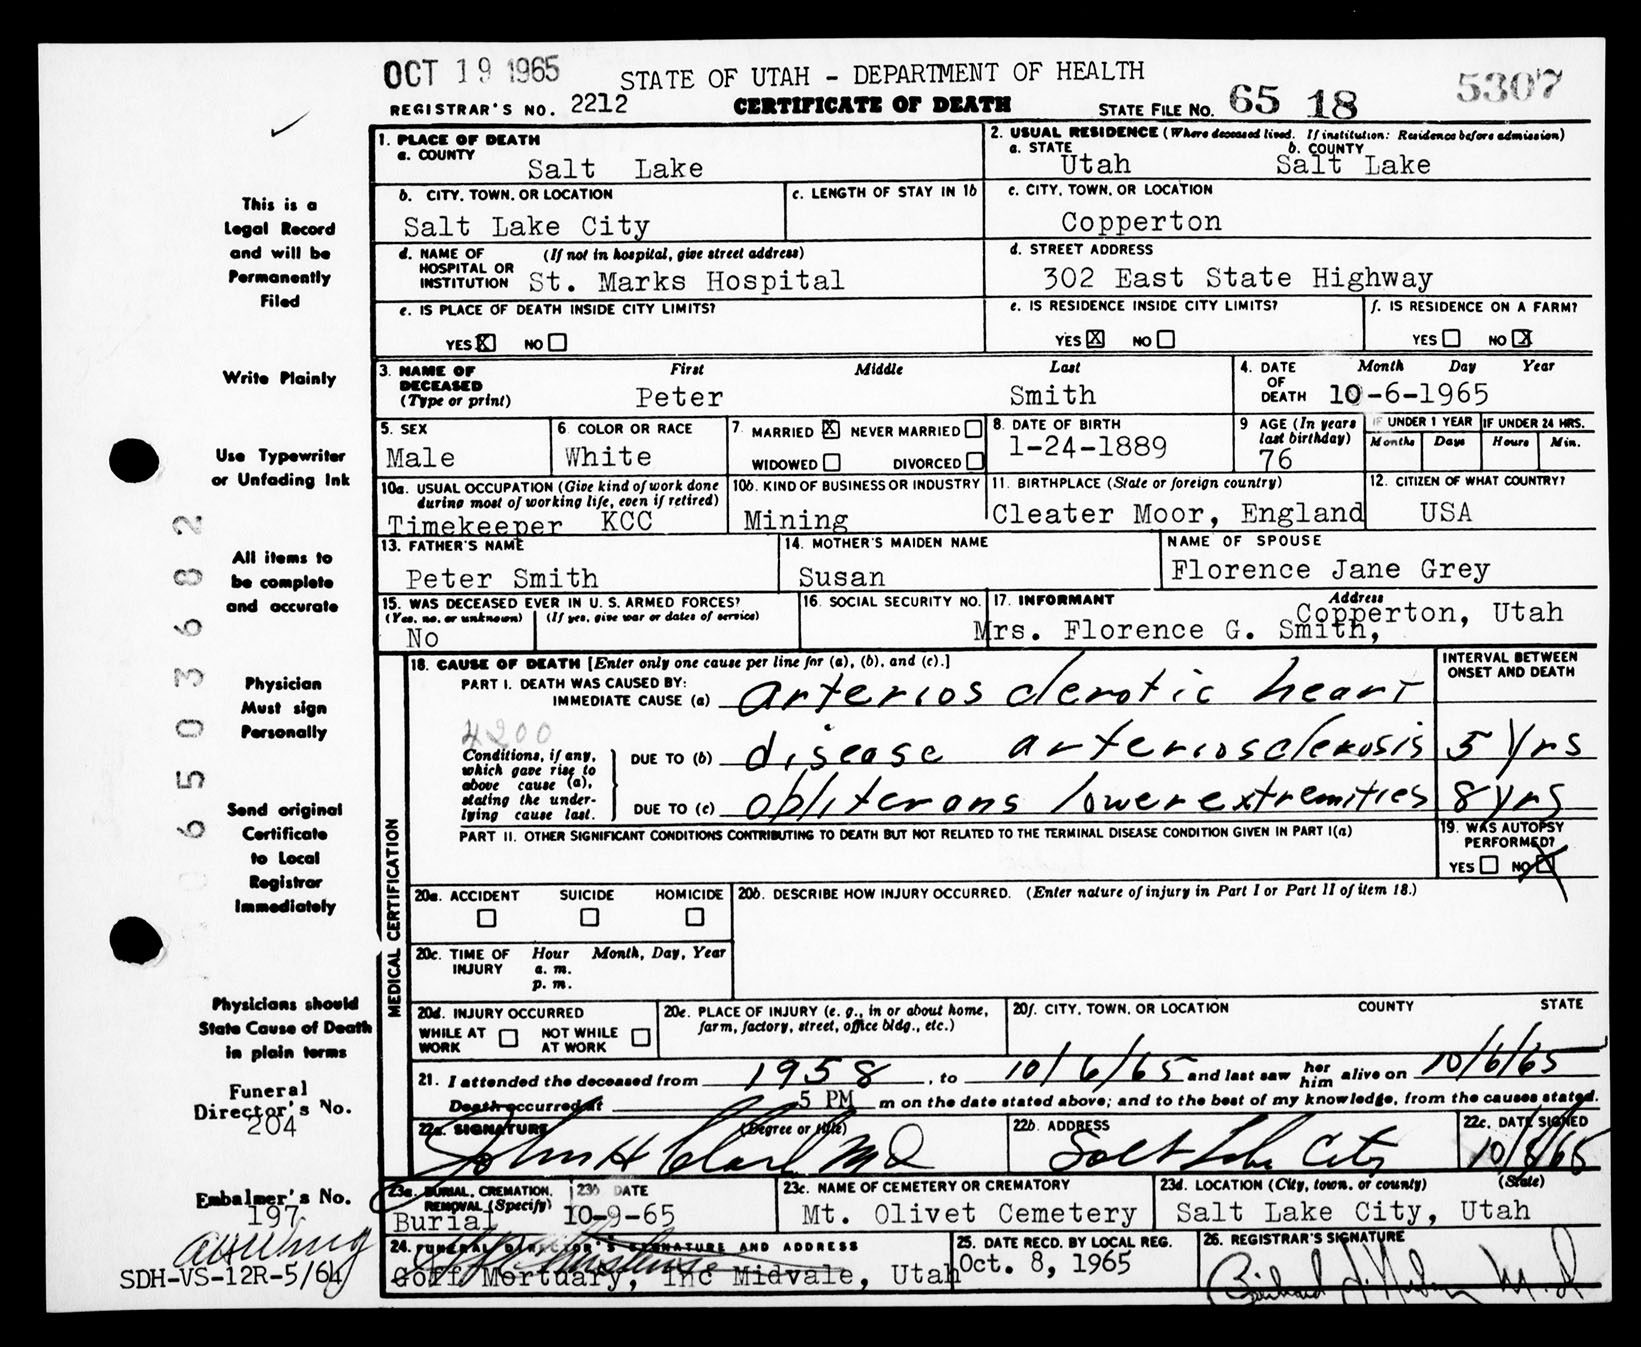 OCT 19 1965
STATE OF UTAH - DEPARTMENT OF HEALTH
5307
REGISTRAR'S NO. 2212
CERTIFICATE OF DEATH
STATE FILE NO. 65 18
This is a
Legal Record
and will be
Permanently
Filed
Write Plainly
Use Typewriter
or Unfading Ink
All items to
be complete
and accurate
Physician
Must sign
Personally
Send original
Certificate
to Local
Registrar
Immediately
Physicians should
State Cause of Death
in plain terms
Funeral
Director's No.
204
Embalmer's No.
197
SDH-VS-12R-5/64
6503682
1. PLACE OF DEATH
a. COUNTY
Salt Lake
2. USUAL RESIDENCE (Where deceased lived. If institution: Residence before admission)
a. STATE b. COUNTY
Utah Salt Lake
b. CITY, TOWN, OR LOCATION
Salt Lake City
c. LENGTH OF STAY IN 1b
c. CITY, TOWN, OR LOCATION
Copperton
d. NAME OF (If not in hospital, give street address)
HOSPITAL OR
INSTITUTION St. Marks Hospital
d. STREET ADDRESS
302 East State Highway
e. IS PLACE OF DEATH INSIDE CITY LIMITS?
YES X NO
e. IS RESIDENCE INSIDE CITY LIMITS?
YES X NO
f. IS RESIDENCE ON A FARM?
YES NO X
3. NAME OF First Middle Last
DECEASED
(Type or print) Peter Smith
4. DATE Month Day Year
OF
DEATH 10-6-1965
5. SEX
Male
6. COLOR OR RACE
White
7. MARRIED X NEVER MARRIED
WIDOWED DIVORCED
8. DATE OF BIRTH
1-24-1889
9 AGE (In years
last birthday)
76
IF UNDER 1 YEAR
Months Days
IF UNDER 24 HRS.
Hours Min.
10a. USUAL OCCUPATION (Give kind of work done
during most of working life, even if retired)
Timekeeper KCC
10b. KIND OF BUSINESS OR INDUSTRY
Mining
11. BIRTHPLACE (State or foreign country)
Cleater Moor, England
12. CITIZEN OF WHAT COUNTRY?
USA
13. FATHER'S NAME
Peter Smith
14. MOTHER'S MAIDEN NAME
Susan
NAME OF SPOUSE
Florence Jane Grey
15. WAS DECEASED EVER IN U. S. ARMED FORCES?
(Yes, no, or unknown) (If yes, give war or dates of service)
No
16. SOCIAL SECURITY NO.
17. INFORMANT Address
Copperton, Utah
Mrs. Florence G. Smith,
MEDICAL CERTIFICATION
18. CAUSE OF DEATH [Enter only one cause per line for (a), (b), and (c).]
INTERVAL BETWEEN
ONSET AND DEATH
PART I. DEATH WAS CAUSED BY:
IMMEDIATE CAUSE (a) arteriosclerotic heart
4200
Conditions, if any,
which gave rise to
above cause (a),
stating the under-
lying cause last.
DUE TO (b) disease arteriosclerosis 5 yrs
DUE TO (c) obliterans lower extremities 8 yrs
PART II. OTHER SIGNIFICANT CONDITIONS CONTRIBUTING TO DEATH BUT NOT RELATED TO THE TERMINAL DISEASE CONDITION GIVEN IN PART I(a)
19. WAS AUTOPSY
PERFORMED?
YES NO X
20a. ACCIDENT SUICIDE HOMICIDE
20b. DESCRIBE HOW INJURY OCCURRED. (Enter nature of injury in Part I or Part II of item 18.)
20c. TIME OF Hour Month, Day, Year
INJURY a. m.
p. m.
20d. INJURY OCCURRED
WHILE AT NOT WHILE
WORK AT WORK
20e. PLACE OF INJURY (e. g., in or about home,
farm, factory, street, office bldg., etc.)
20f. CITY, TOWN, OR LOCATION COUNTY STATE
21. I attended the deceased from 1958, to 10/6/65 and last saw her him alive on 10/6/65
Death occurred at 5 PM m on the date stated above; and to the best of my knowledge, from the causes stated.
22a. SIGNATURE (Degree or title)
John H Clark MD
22b. ADDRESS
Salt Lake City
22c. DATE SIGNED
23a. BURIAL, CREMATION,
REMOVAL (Specify)
Burial
23b DATE
10-9-65
23c. NAME OF CEMETERY OR CREMATORY
Mt. Olivet Cemetery
23d. LOCATION (City, town, or county) (State)
Salt Lake City, Utah
24. FUNERAL DIRECTOR'S SIGNATURE AND ADDRESS
Goff Mortuary, Inc Midvale, Utah
25. DATE RECD. BY LOCAL REG.
Oct. 8, 1965
26. REGISTRAR'S SIGNATURE